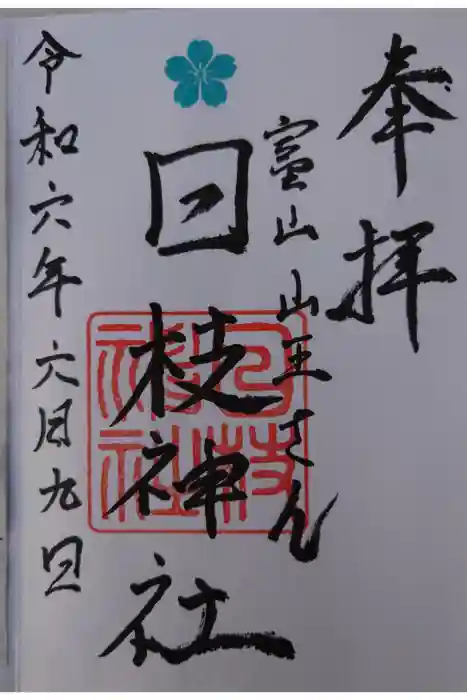 奉拝
富山山王さん
日枝神社
日枝神社
令和六年六月九日